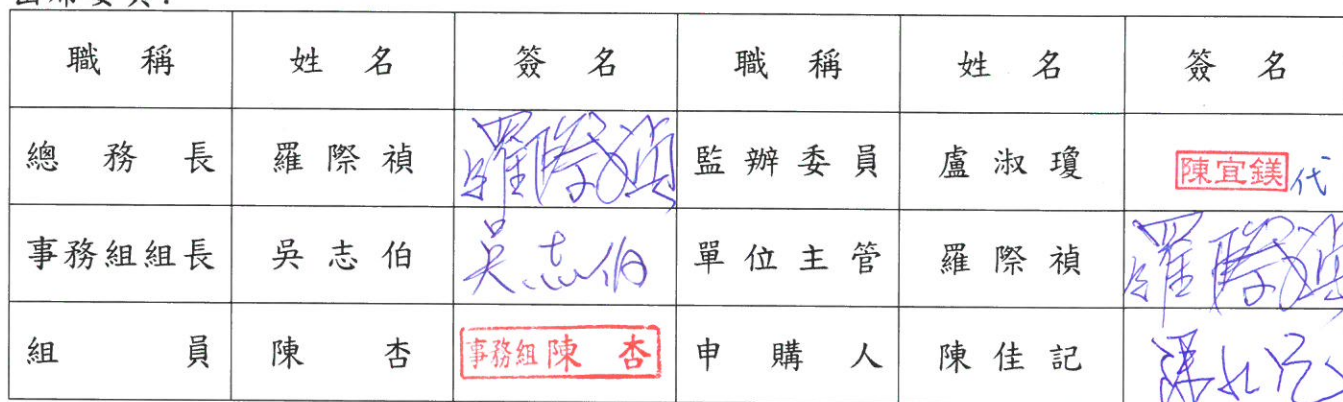 出席委員：
職稱 姓名 簽名 職稱 姓名 簽名
總務長 羅際禎 羅際禎 監辦委員 盧淑瓊 陳宜鎂代
事務組組長 吳志伯 吳志伯 單位主管 羅際禎 羅際禎
組員 陳杏 事務組陳杏 申購人 陳佳記